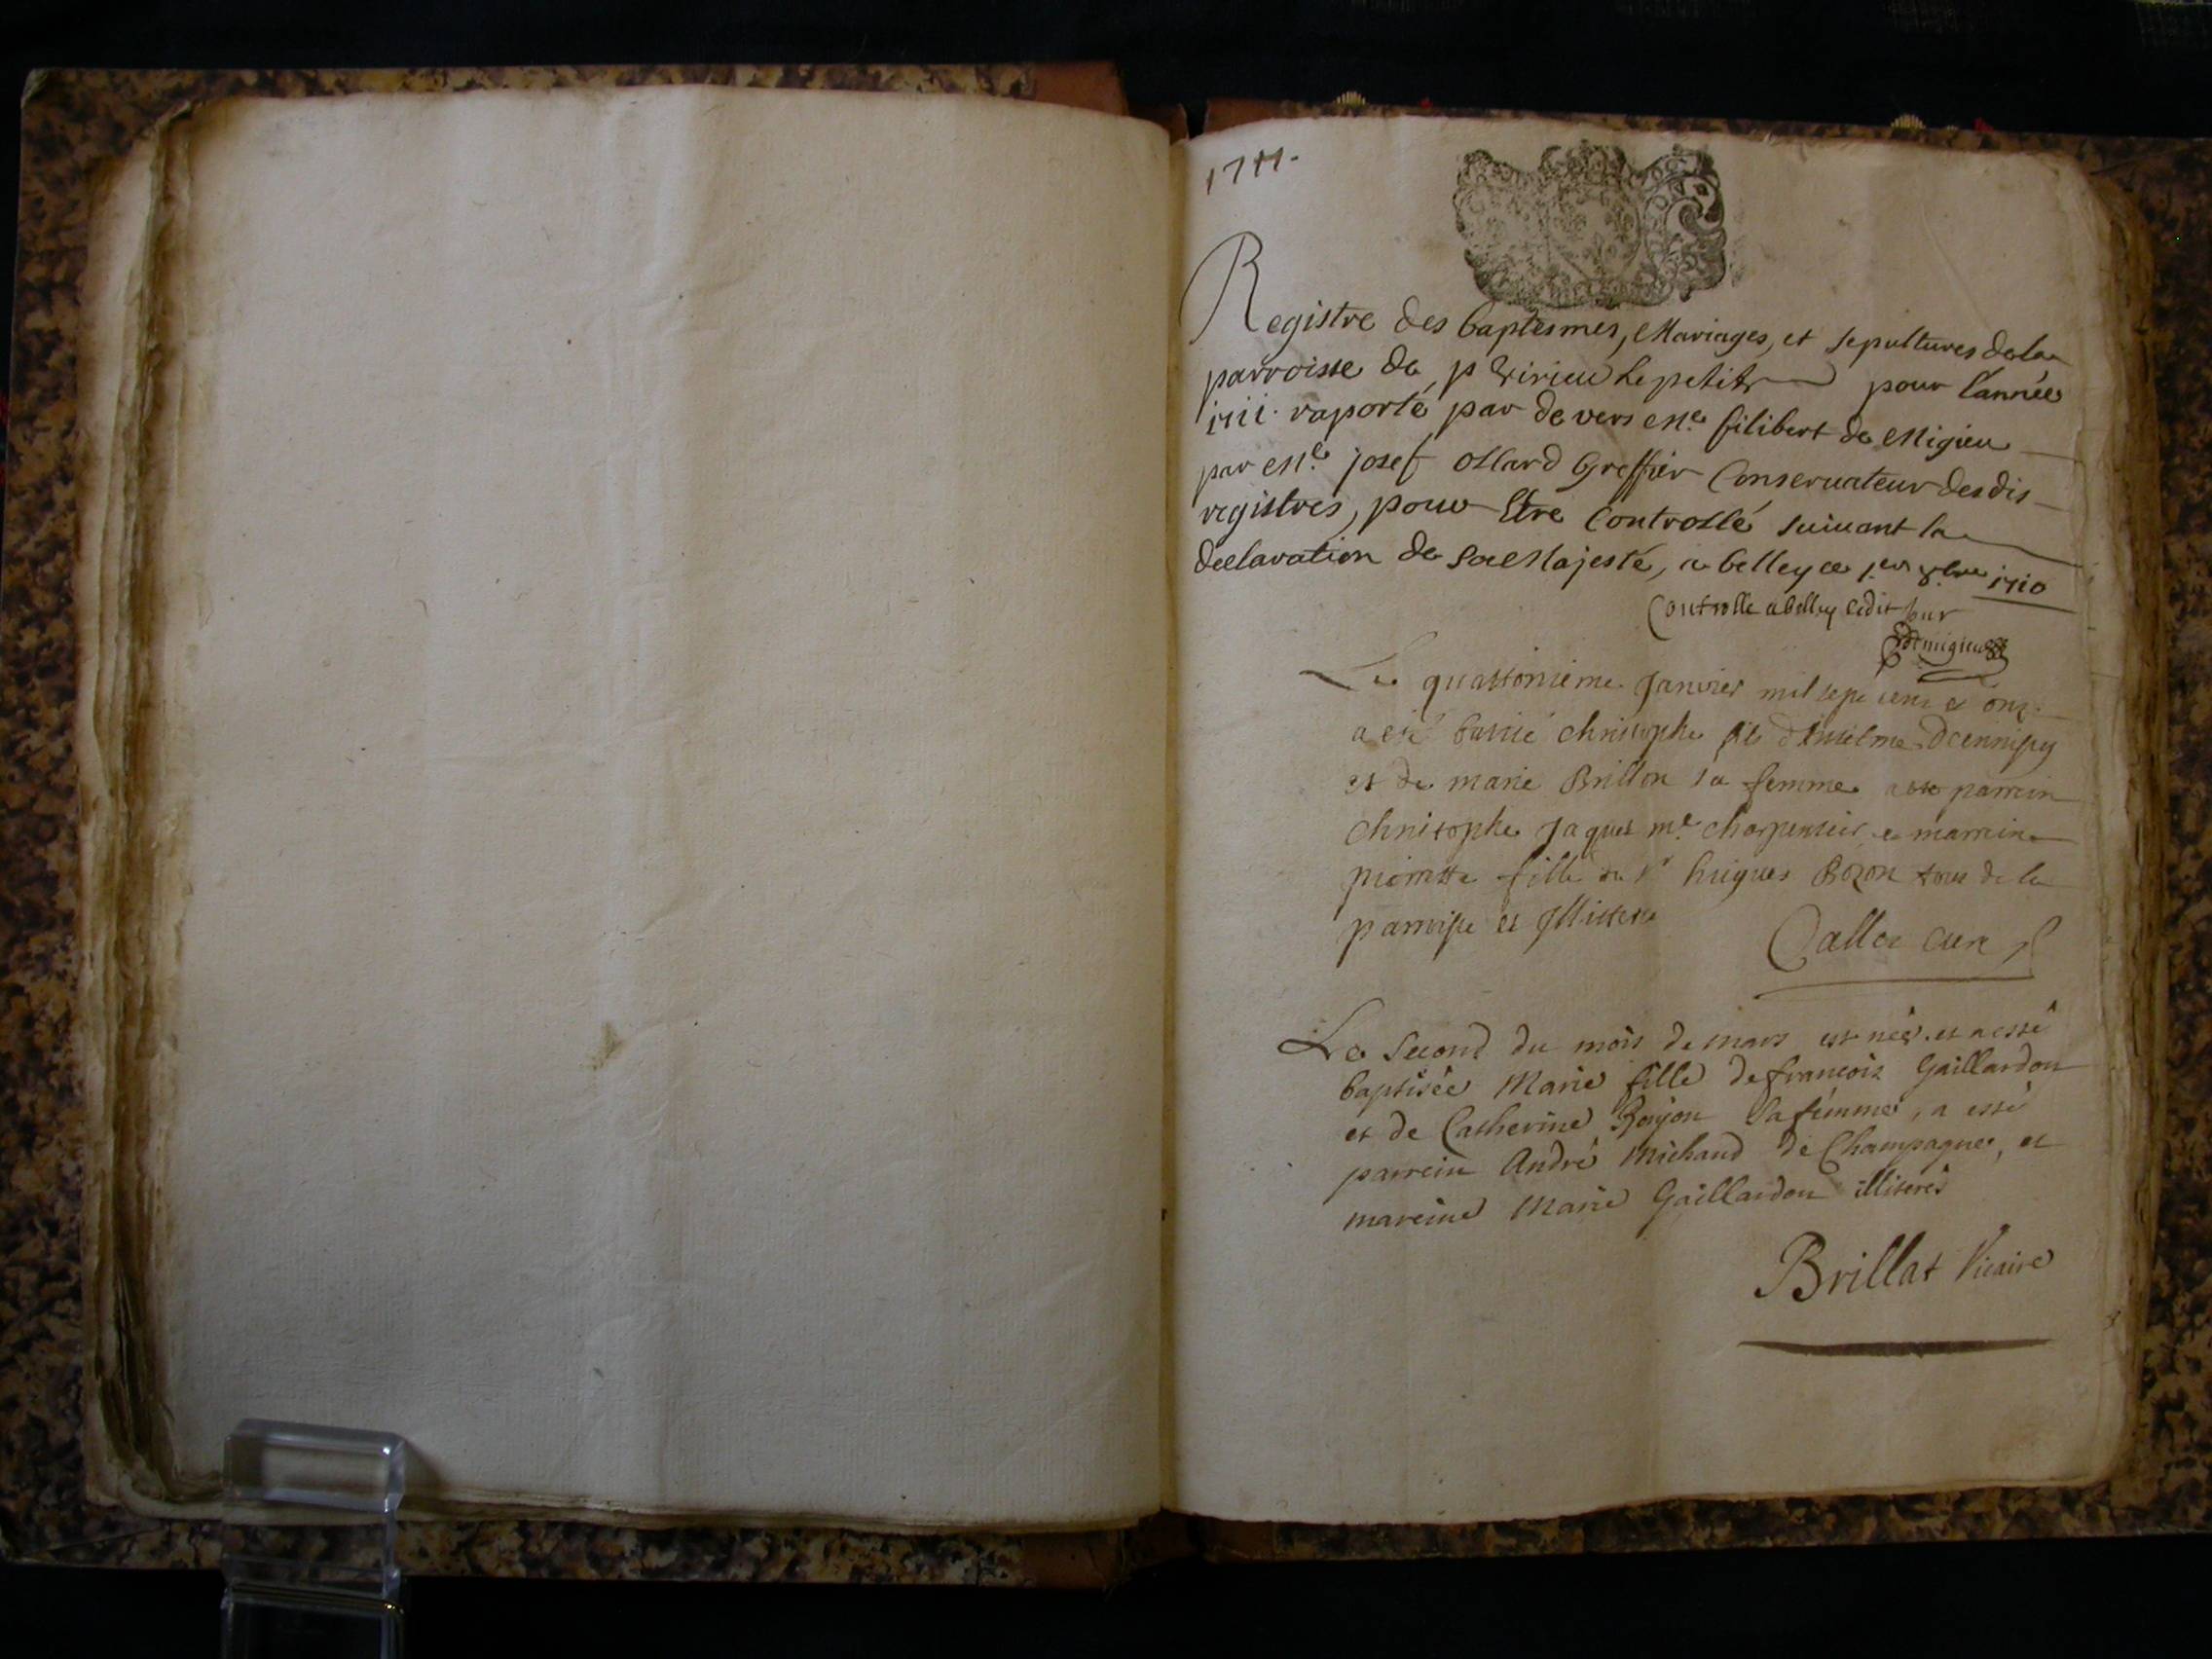 1711.
Registre des baptesmes, Mariages, et sepultures de la
parroisse de Virieu le petit pour l'année
1711. raporté par devers Me. filibert de Migieu
par Me. josef ollard Greffier Conservateur desdis
registres, pour Etre Controllé suivant la
declaration de Sa Majesté, a belley ce 1er 1710
Controlle a belley ledit jour
demigieu
Le quattorsieme Janvier mil sept cens et onze
a esté Christophe fils d'Anselme
et de marie Brillon sa femme parrein
Christophe Jaques me. charpentier et marreine
fille du Sr hugues Bozon tous de la
parroisse et Illitteré
Curé
Le Second du mois de mars est née et a esté
baptisée Marie fille de francois Gaillardon
et de Catherine sa femme, a esté
parrein André Michaud de Champagne, et
mareine Marie Gaillardon illiterés
Brillat Vicaire